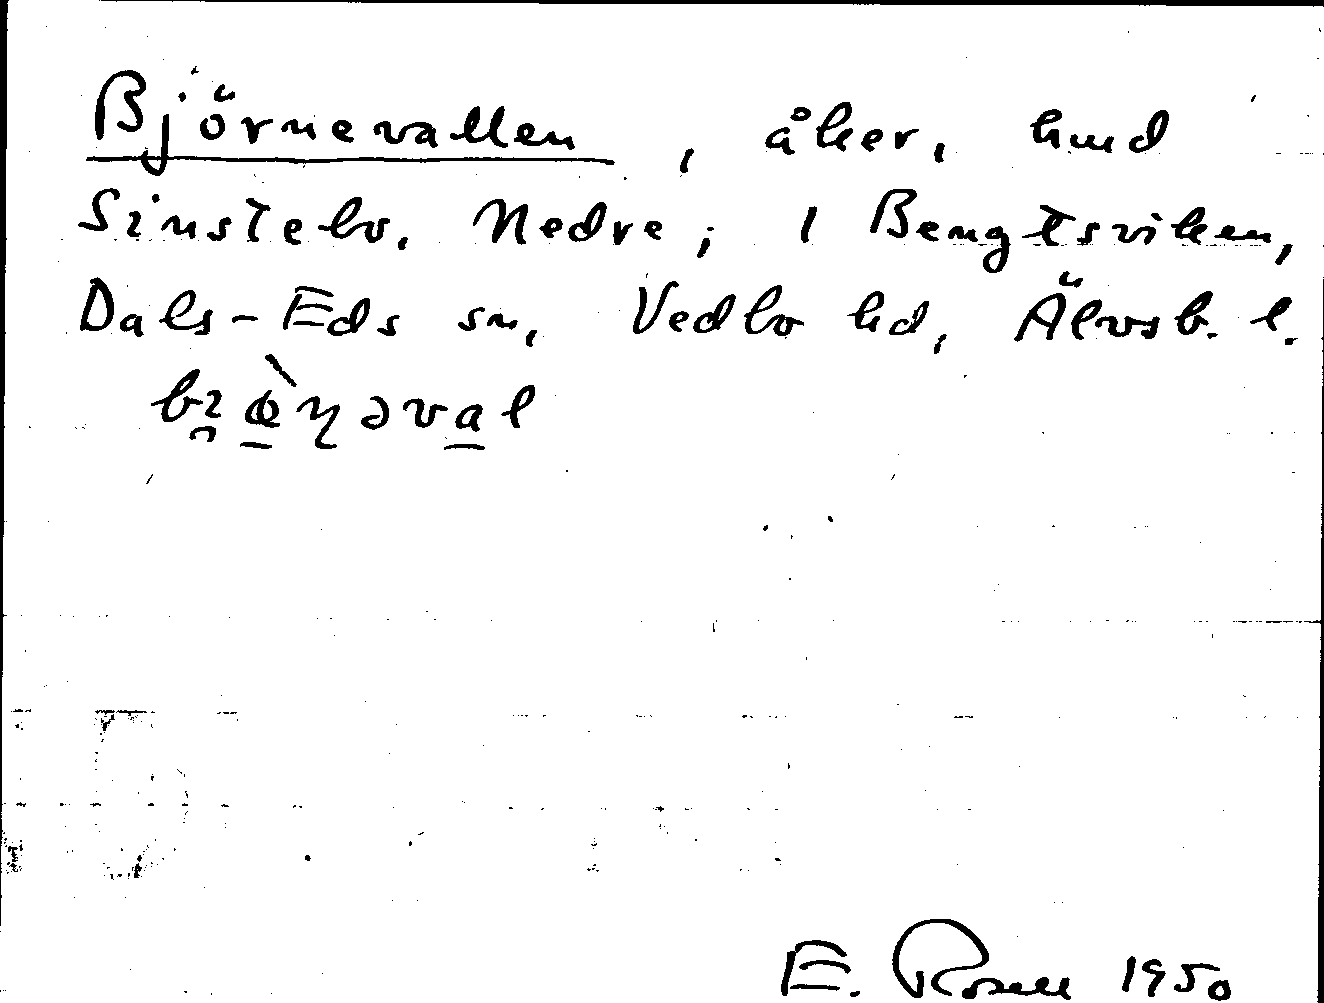 Björnevallen, åker, hmd
Sinstebo, Nedre; 1 Bengtsviken,
Dals-Eds sn, Vedbo hd, Älvsb. l.
E. Rosell 1950